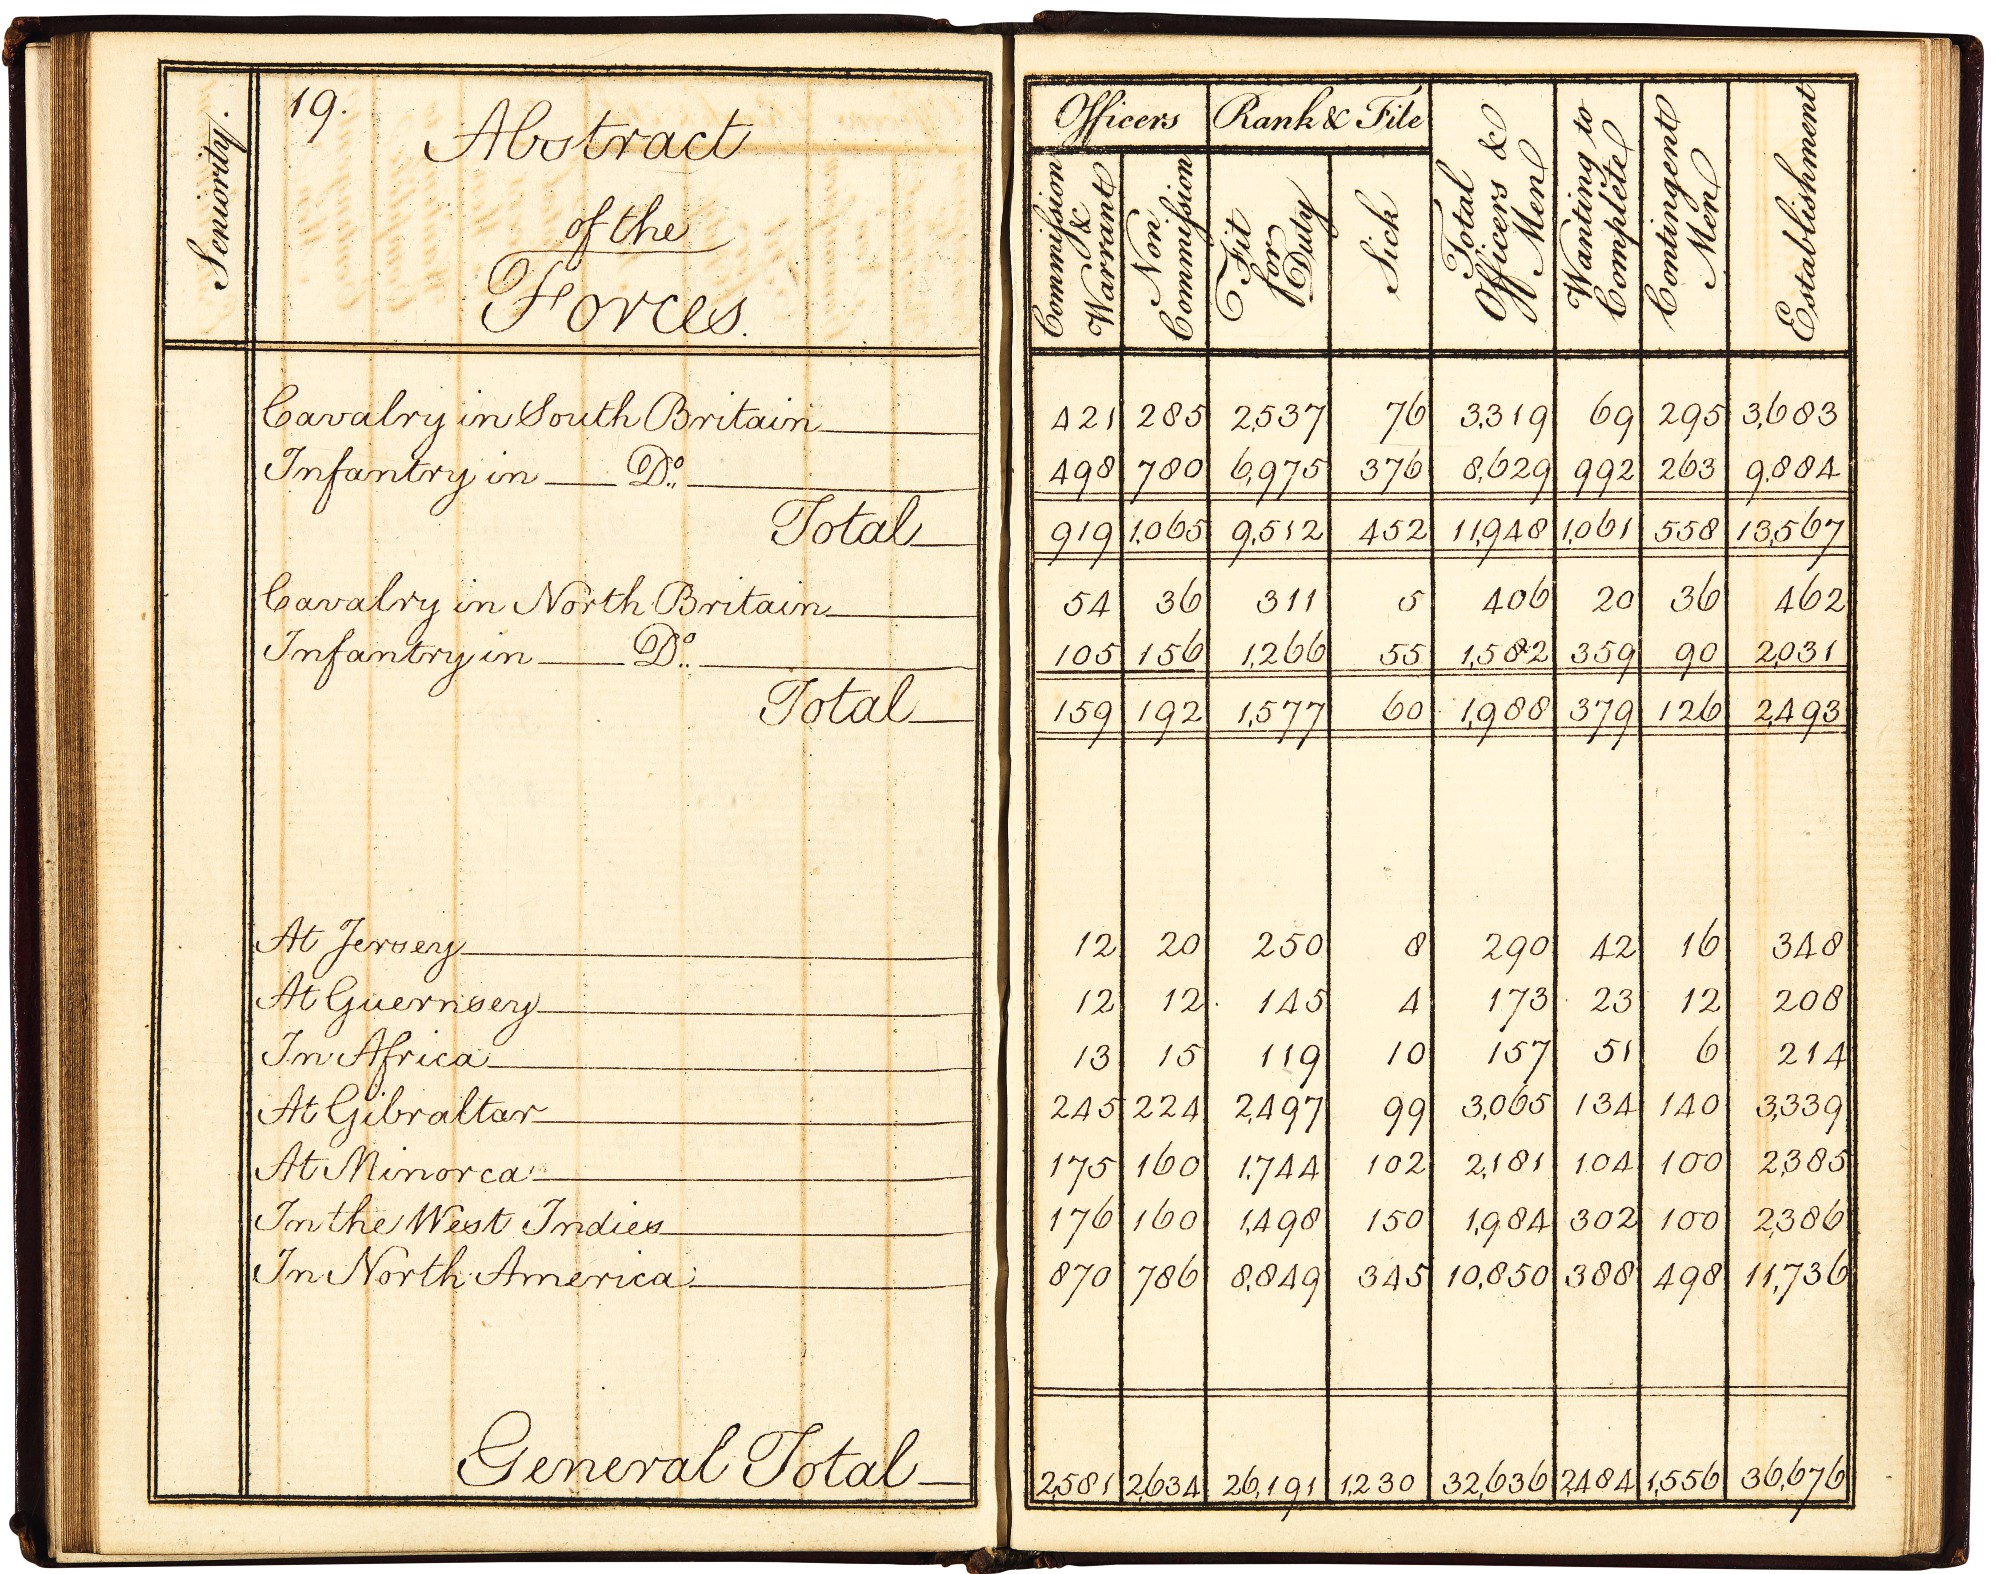 Seniority.
19.
Abstract
of the
Forces.
Officers Rank & File
Commission & Warrant
Non Commission
Fit for Duty
Sick
Total Officers & Men
Wanting to Complete
Contingent Men
Establishment
Cavalry in South Britain 421 285 2,537 76 3,319 69 295 3,683
Infantry in Do. 498 780 6,975 376 8,629 992 263 9,884
Total 919 1,065 9,512 452 11,948 1,061 558 13,567
Cavalry in North Britain 54 36 311 5 406 20 36 462
Infantry in Do. 105 156 1,266 55 1,582 359 90 2,031
Total 159 192 1,577 60 1,988 379 126 2,493
At Jersey 12 20 250 8 290 42 16 348
At Guernsey 12 12 145 4 173 23 12 208
In Africa 13 15 119 10 157 51 6 214
At Gibraltar 245 224 2,497 99 3,065 134 140 3,339
At Minorca 175 160 1,744 102 2,181 104 100 2,385
In the West Indies 176 160 1,498 150 1,984 302 100 2,386
In North America 870 786 8,849 345 10,850 388 498 11,736
General Total 2,581 2,634 26,191 1,230 32,636 2,484 1,556 36,676